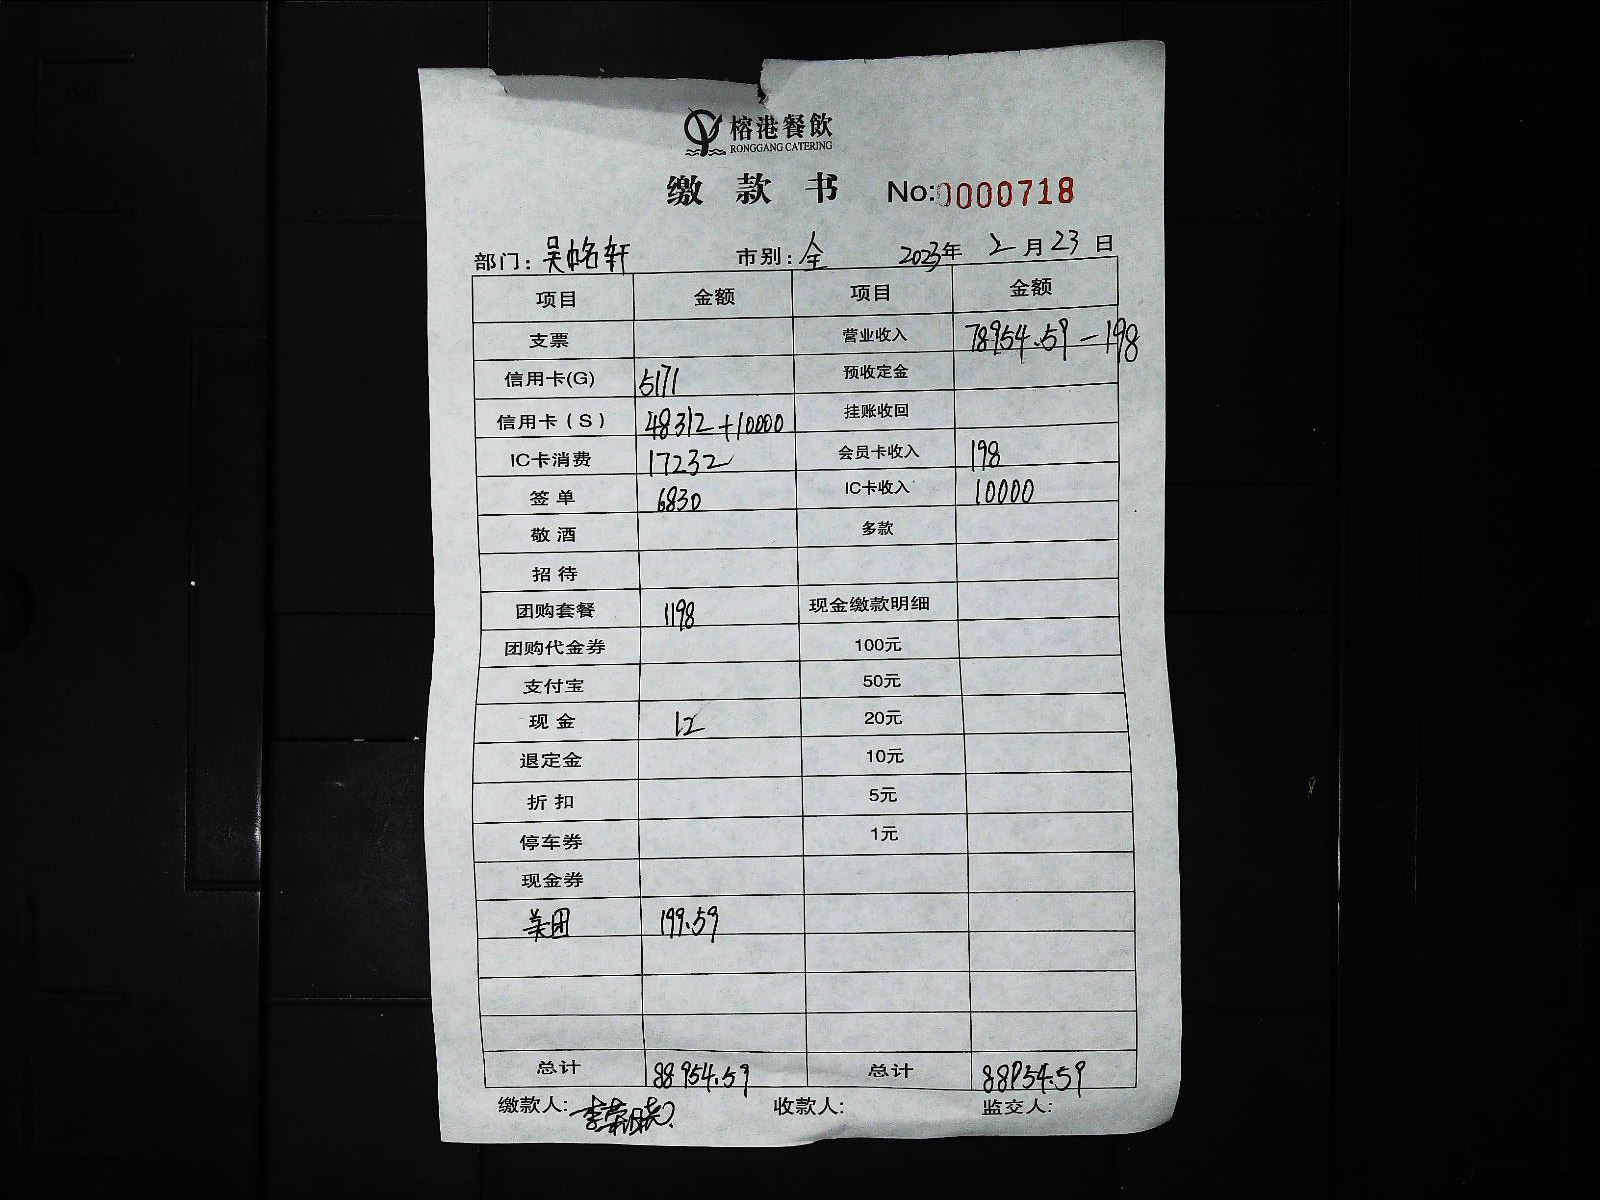 榕港餐飲
RONGGANG CATERING
缴款书 No:0000718
部门：吴帧轩 市别：全 2023年 2月23日
项目 金额 项目 金额
支票 营业收入 78954.59-198
信用卡(G) 5171 预收定金
信用卡（S） 48312+10000 挂账收回
IC卡消费 17232 会员卡收入 198
签单 6830 IC卡收入 10000
敬酒 多款
招待
团购套餐 1198 现金缴款明细
团购代金券 100元
支付宝 50元
现金 12 20元
退定金 10元
折扣 5元
停车券 1元
现金券
美团 199.59
总计 88954.59 总计 88954.59
缴款人: 收款人: 监交人: